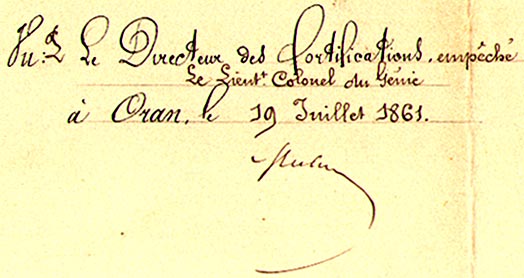 Vu: Le Directeur des Fortifications, empêché
Le Lieut.t Colonel du Génie
à Oran, le 19 Juillet 1861.